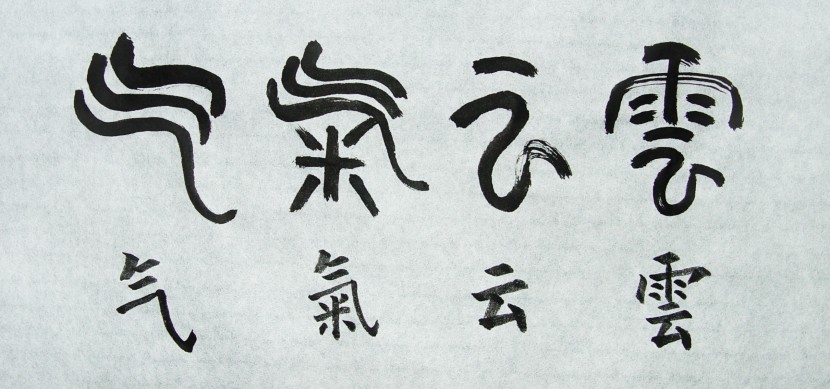 气 氣 云 雲
气 氣 云 雲